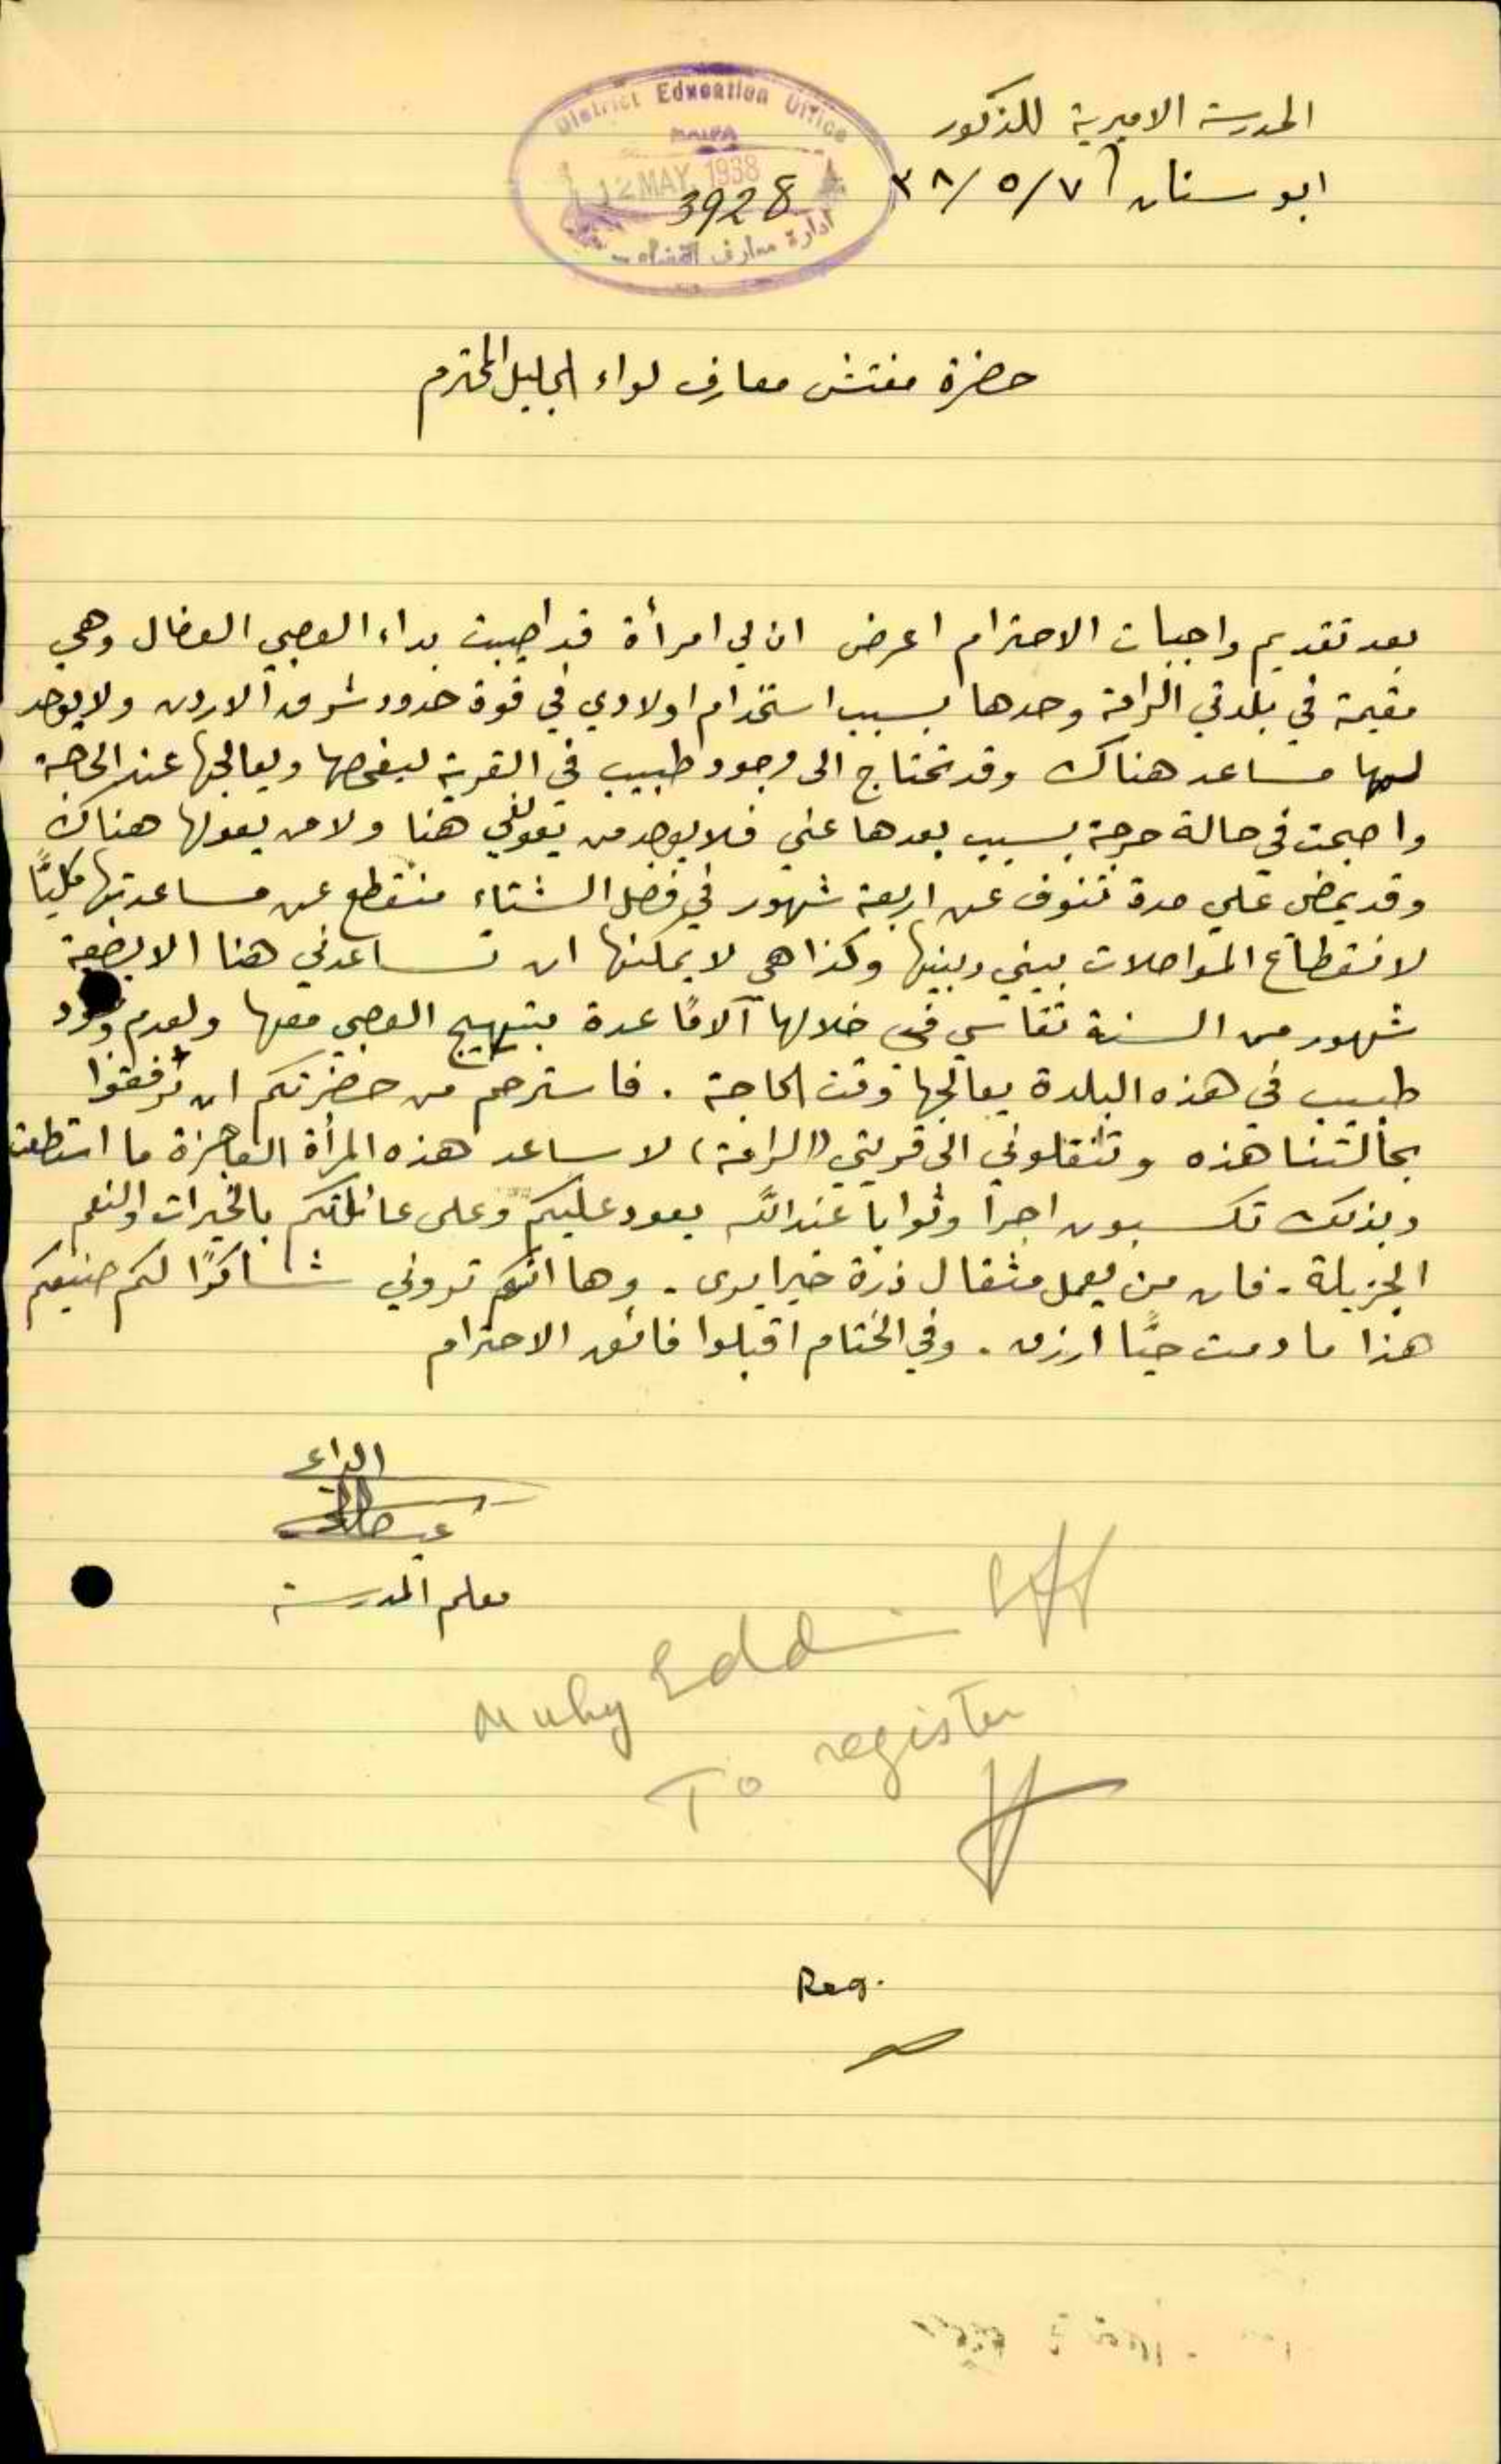 المدرسة الاميرية للذكور
ابو سنان ٣٨/٥/٧
District Education Office
HAIFA
12 MAY 1938
3928
ادارة معارف القضاء
حضرة مفتش معارف لواء الجليل المحترم
بعد تقديم واجبات الاحترام اعرض ان لي امرأة قد اصيبت بداء العصبي العضال وهي
مقيمة في بلدتي الرامة وحدها بسبب استخدام اولادي في قوة حدود شرق الاردن ولا يوجد
لها مساعد هناك وقد تحتاج الى وجود طبيب في القرية ليفحصها ويعالجها عند الحاجة
واصبحت في حالة حرجة بسبب بعدها عني فلا يوجد من يعولني هنا ولا من يعولها هناك
وقد يمضي علي مدة تنوف عن اربعة شهور في فصل الشتاء منقطع عن مساعدتها كليًا
لانقطاع المواصلات بيني وبينها وكذا هي لا يمكنها ان تساعدني هنا الا بضعة
شهور من السنة تقاسي في خلالها آلامًا عدة بتهييج العصبي معها ولعدم وجود
طبيب في هذه البلدة يعالجها وقت الحاجة . فاسترحم من حضرتكم ان ترفقوا
بحالتنا هذه وتنقلوني الى قريتي (الرامة) لاساعد هذه المرأة العاجزة ما استطعت
وبذلك تكسبون اجرا وثوابا عند الله يعود عليكم وعلى عائلتكم بالخيرات والنعم
الجزيلة . فان من يعمل مثقال ذرة خيرا يرى . وها انكم تروني شاكرًا لكم صنيعكم
هذا ما دمت حيًا ارزق . وفي الختام اقبلوا فائق الاحترام
الداعي
معلم المدرسة
Muhy Eddin Eff
To register
Reg.